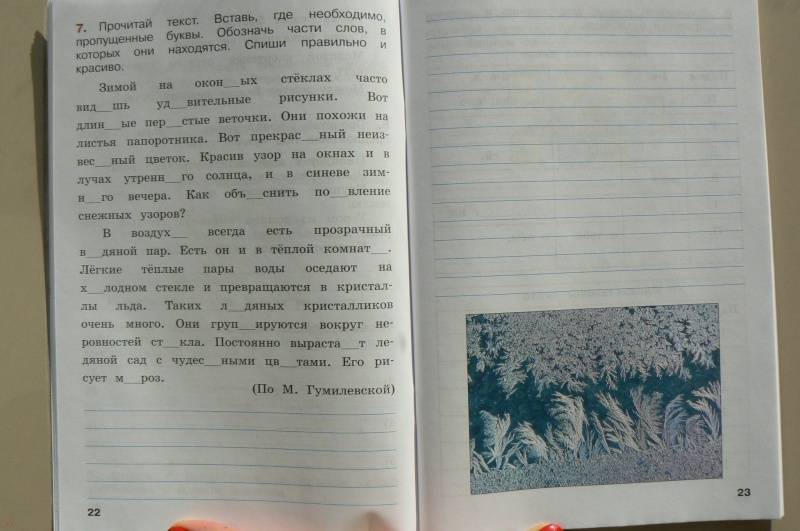 7. Прочитай текст. Вставь, где необходимо,
пропущенные буквы. Обозначь части слов, в
которых они находятся. Спиши правильно и
красиво.
Зимой на окон__ых стёклах часто
вид__шь уд__вительные рисунки. Вот
длин__ые пер__стые веточки. Они похожи на
листья папоротника. Вот прекрас__ный неиз-
вес__ный цветок. Красив узор на окнах и в
лучах утренн__го солнца, и в синеве зим-
н__го вечера. Как объ__снить по__вление
снежных узоров?
В воздух__ всегда есть прозрачный
в__дяной пар. Есть он и в тёплой комнат__.
Лёгкие тёплые пары воды оседают на
х__лодном стекле и превращаются в кристал-
лы льда. Таких л__дяных кристалликов
очень много. Они груп__ируются вокруг не-
ровностей ст__кла. Постоянно выраста__т ле-
дяной сад с чудес__ными цв__тами. Его ри-
сует м__роз.
(По М. Гумилевской)
22
23